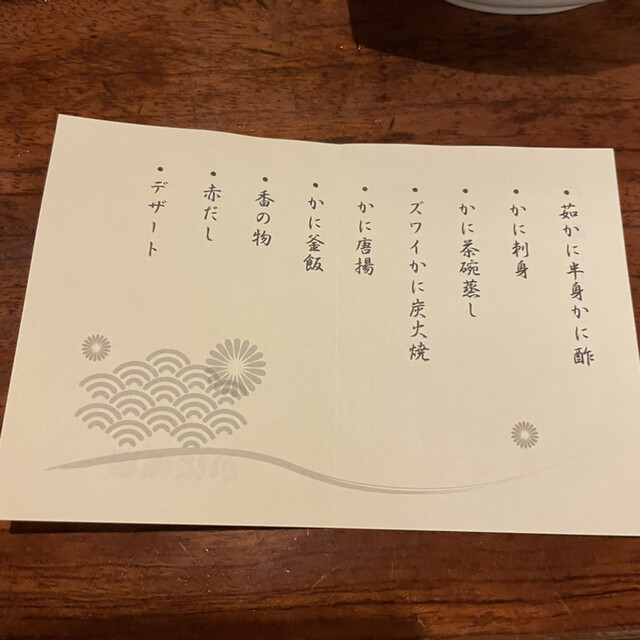 ・茹かに半身かに酢
・かに刺身
・かに茶碗蒸し
・ズワイかに炭火焼
・かに唐揚
・かに釜飯
・香の物
・赤だし
・デザート